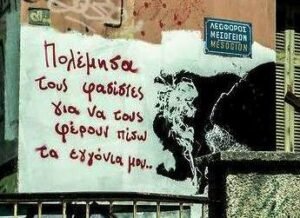 ΛΕΩΦΟΡΟΣ
ΜΕΣΟΓΕΙΩΝ
MESOGION
Πολέμησα
τους φασίστες
για να τους
φέρουν πίσω
τα εγγόνια μου..